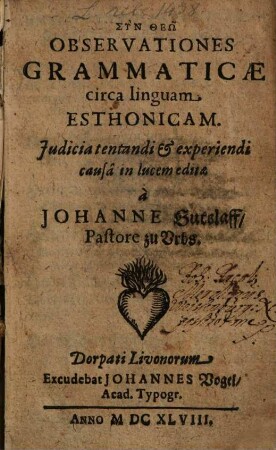 ΣΥΝ ΘΕΩ
OBSERVATIONES
GRAMMATICÆ
circa linguam
ESTHONICAM.
Judicia tentandi & experiendi
causâ in lucem editæ
à
JOHANNE Gutslaff/
Pastore zu Urbs.
Dorpati Livonorum
Excudebat JOHANNES Vogel/
Acad. Typogr.
ANNO M DC XLVIII.